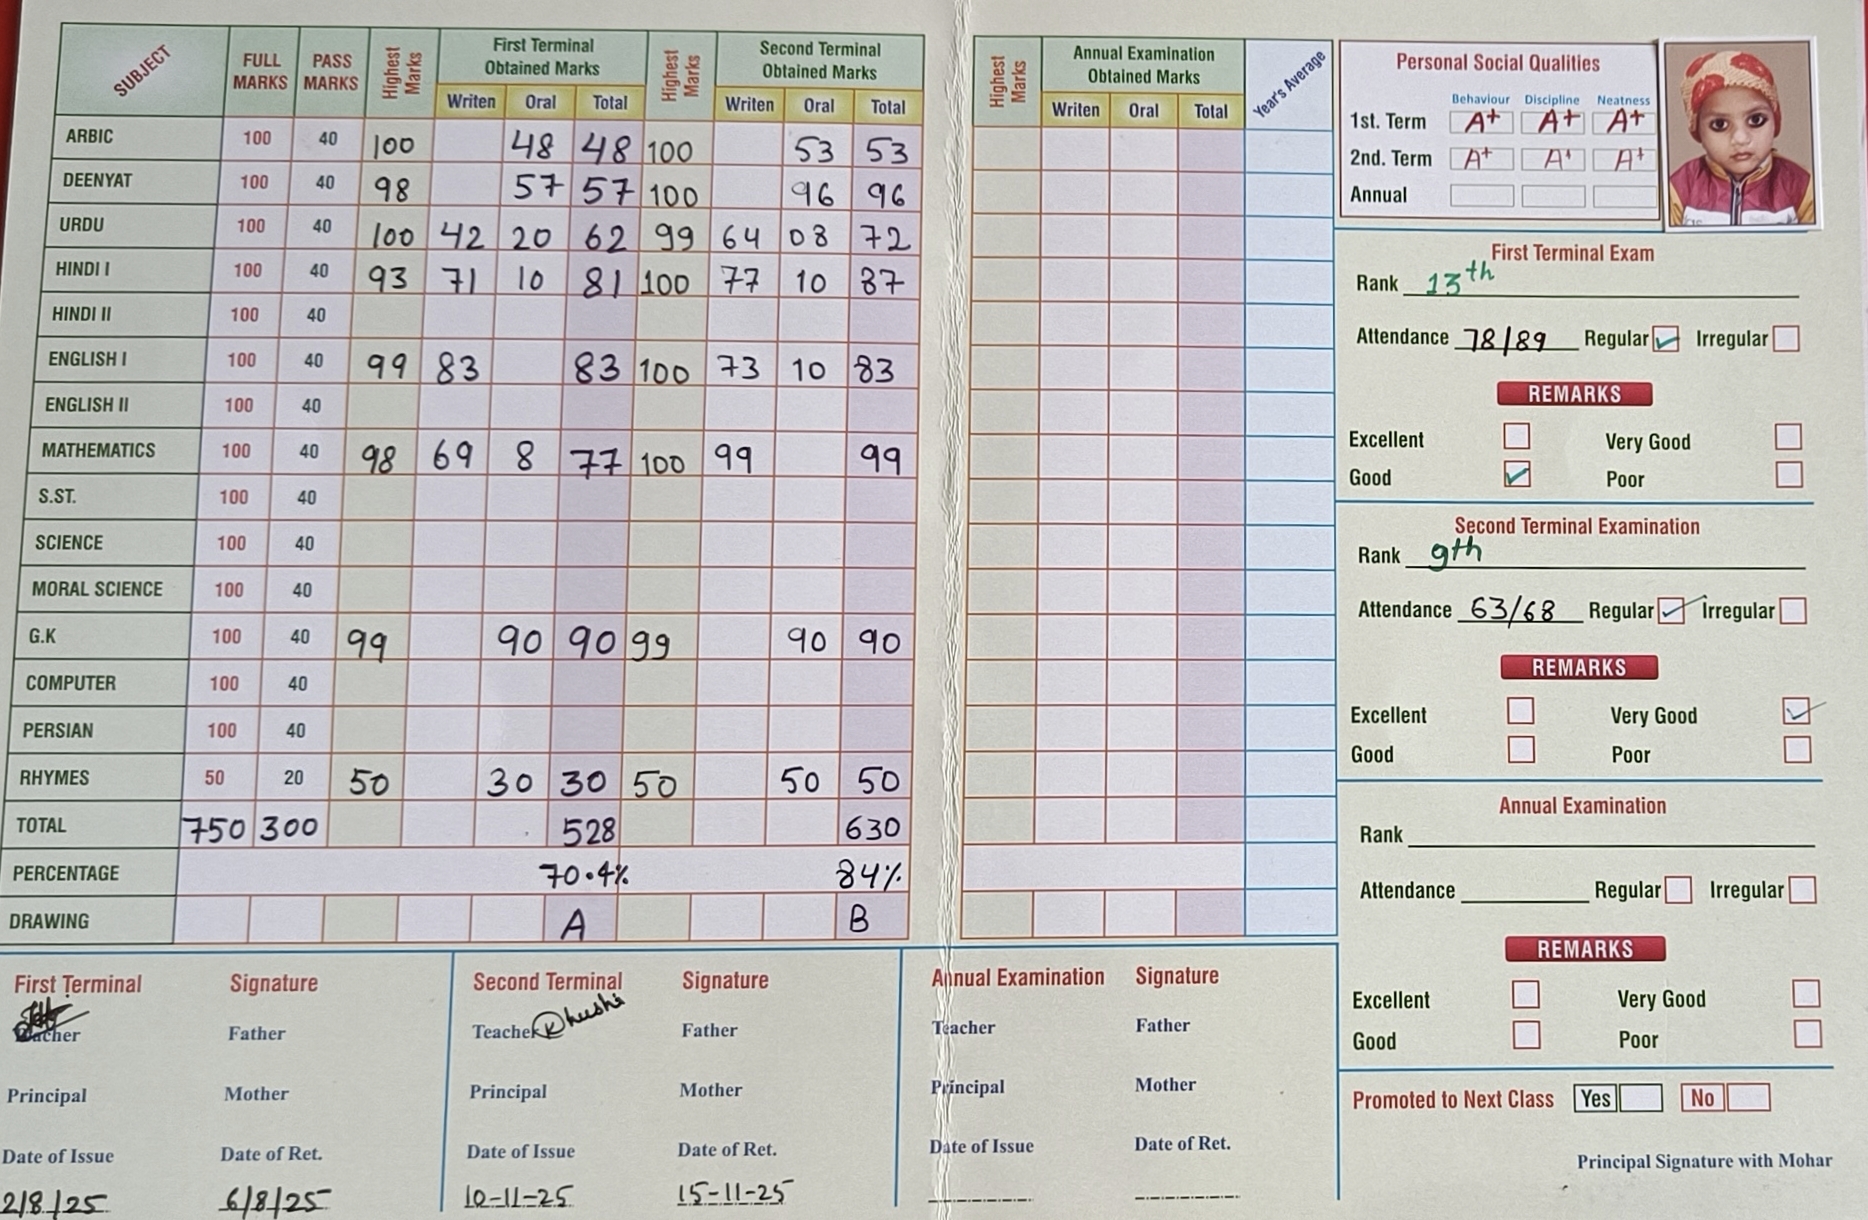 SUBJECT FULL MARKS PASS MARKS Highest Marks First Terminal Obtained Marks Highest Marks Second Terminal Obtained Marks Highest Marks Annual Examination Obtained Marks Year's Average
Writen Oral Total Writen Oral Total Writen Oral Total
ARBIC 100 40 100 48 48 100 53 53
DEENYAT 100 40 98 57 57 100 96 96
URDU 100 40 100 42 20 62 99 64 08 72
HINDI I 100 40 93 71 10 81 100 77 10 87
HINDI II 100 40
ENGLISH I 100 40 99 83 83 100 73 10 83
ENGLISH II 100 40
MATHEMATICS 100 40 98 69 8 77 100 99 99
S.ST. 100 40
SCIENCE 100 40
MORAL SCIENCE 100 40
G.K 100 40 99 90 90 99 90 90
COMPUTER 100 40
PERSIAN 100 40
RHYMES 50 20 50 30 30 50 50 50
TOTAL 750 300 528 630
PERCENTAGE 70.4% 84%
DRAWING A B
First Terminal Signature
Teacher Father
Principal Mother
Date of Issue Date of Ret.
2/8/25 6/8/25
Second Terminal Signature
Teacher Khushi Father
Principal Mother
Date of Issue Date of Ret.
10-11-25 15-11-25
Annual Examination Signature
Teacher Father
Principal Mother
Date of Issue Date of Ret.
Personal Social Qualities
Behaviour Discipline Neatness
1st. Term A+ A+ A+
2nd. Term A+ A+ A+
Annual
First Terminal Exam
Rank 13th
Attendance 78/89 Regular Irregular
REMARKS
Excellent Very Good
Good Poor
Second Terminal Examination
Rank 9th
Attendance 63/68 Regular Irregular
REMARKS
Excellent Very Good
Good Poor
Annual Examination
Rank
Attendance Regular Irregular
REMARKS
Excellent Very Good
Good Poor
Promoted to Next Class Yes No
Principal Signature with Mohar